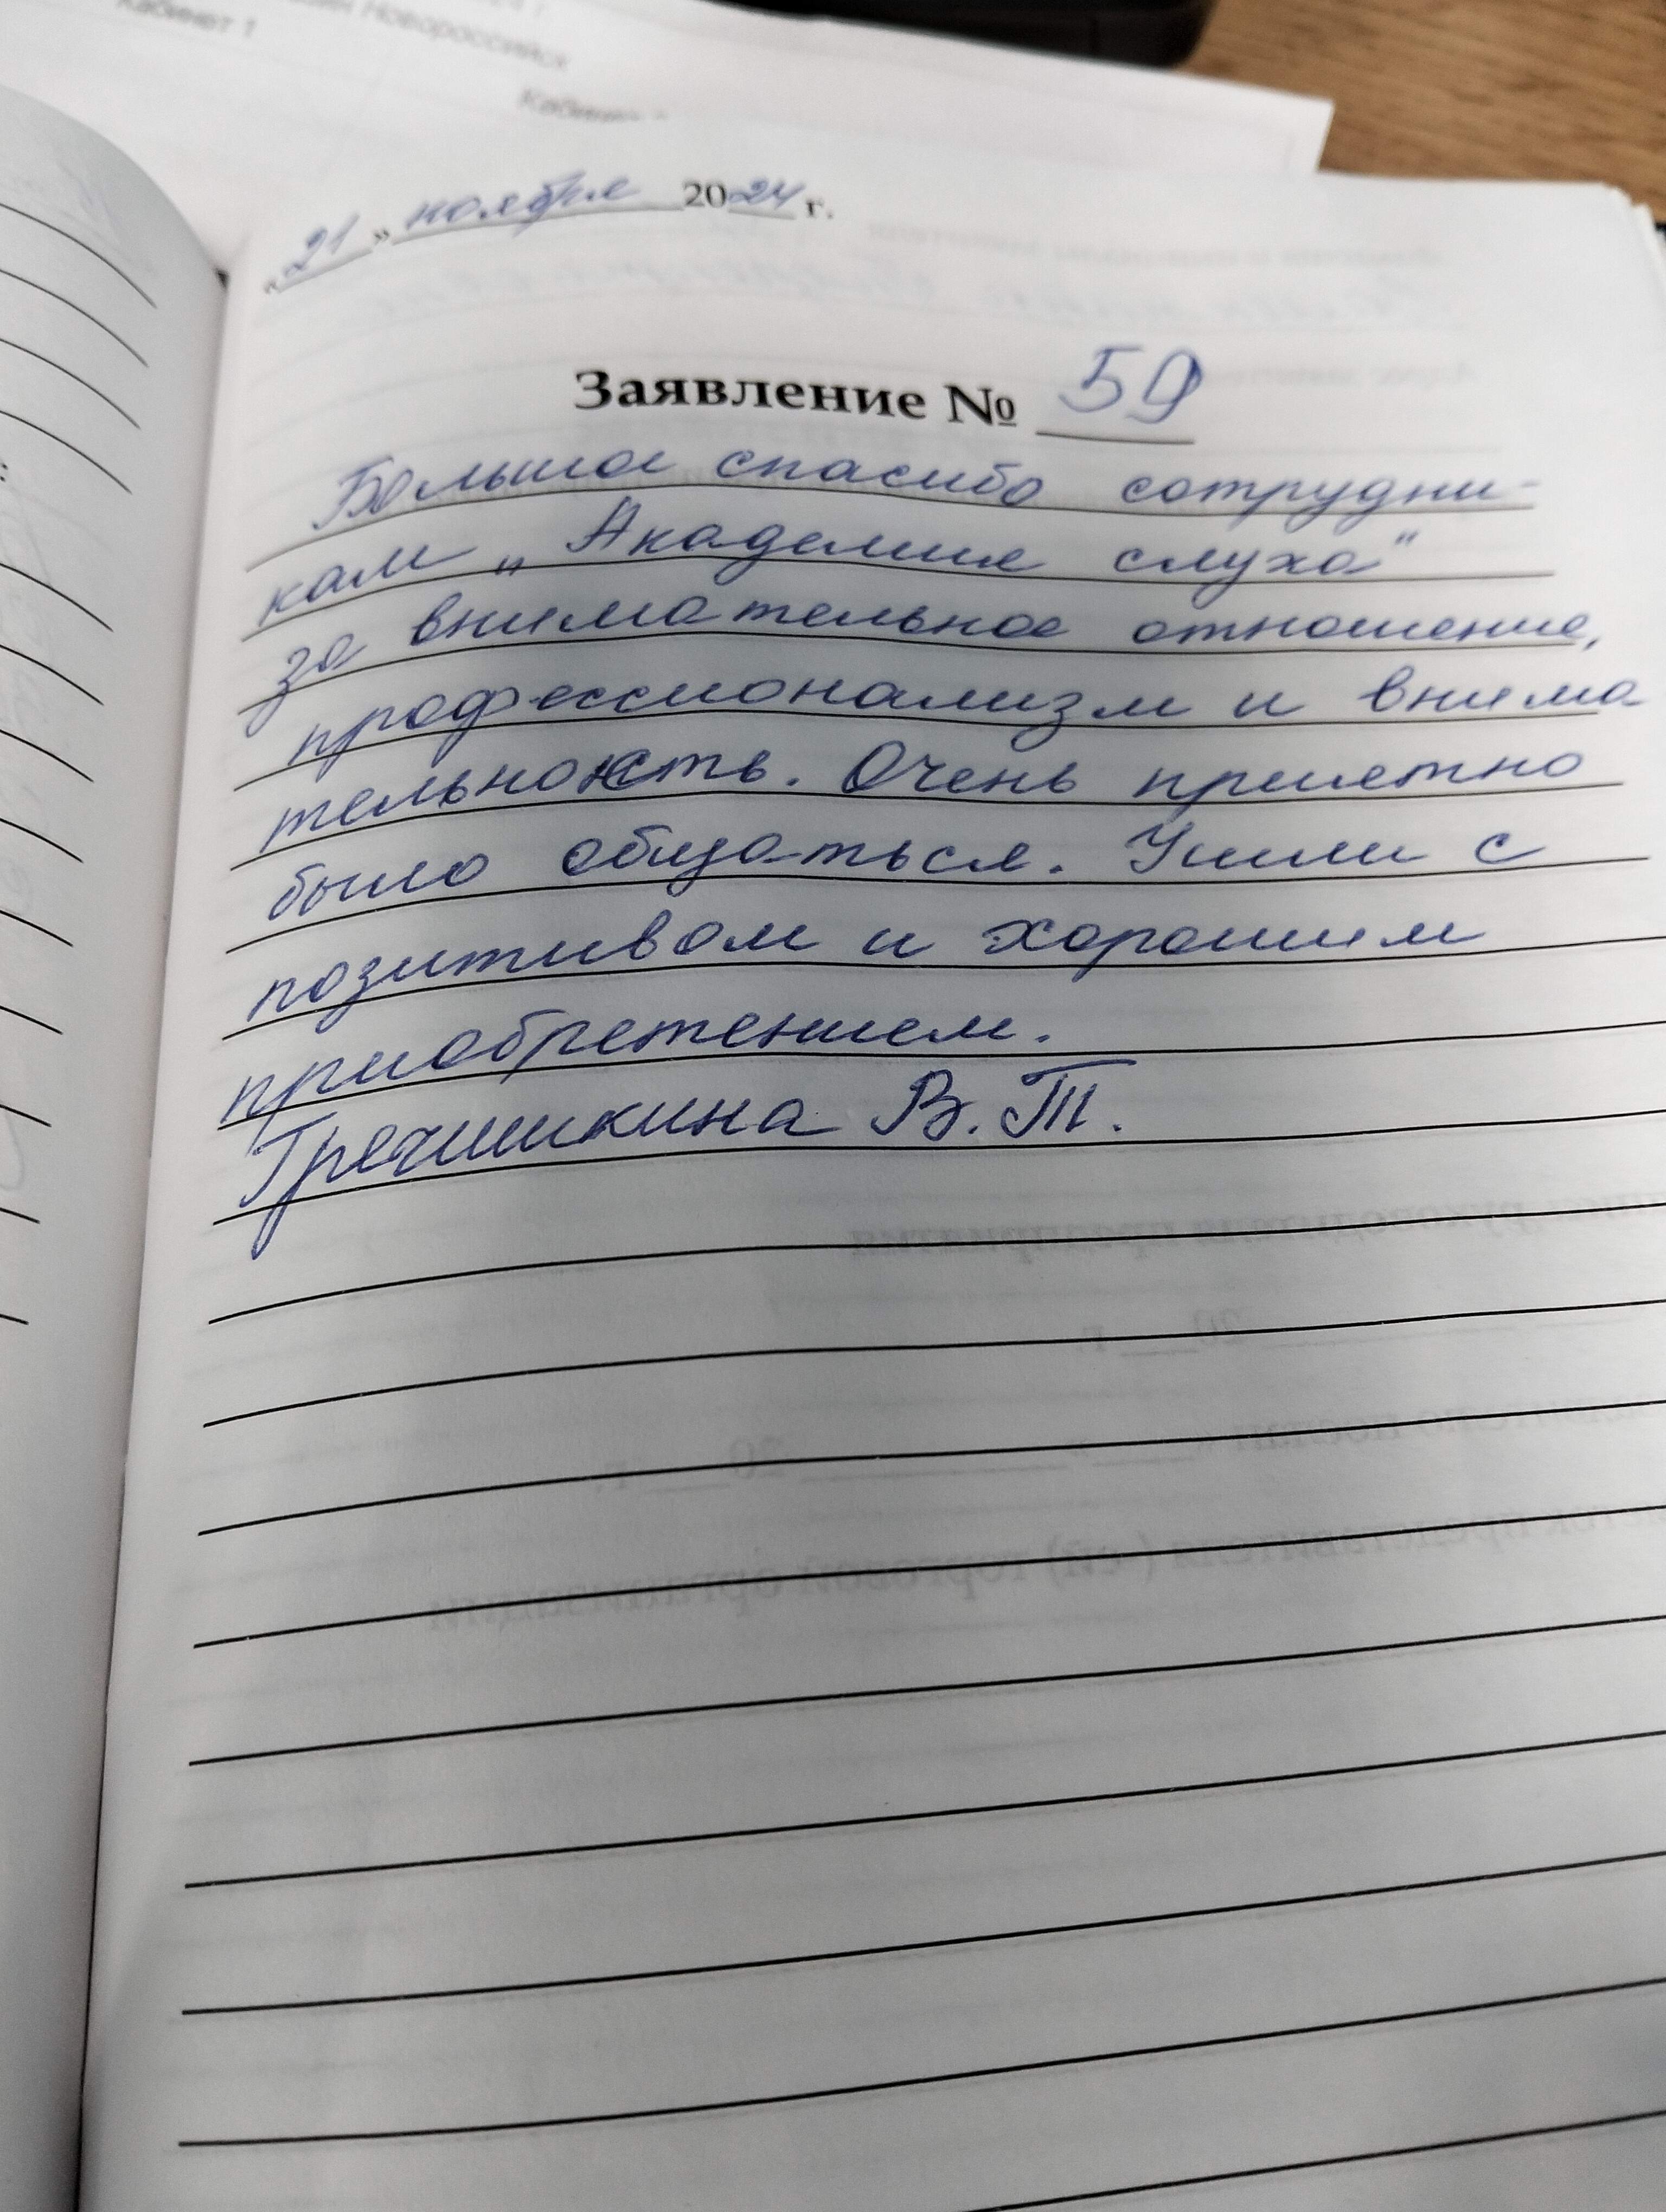 Кабинет 1
Новороссийск
« 21 » ноября 2024 г.
Заявление № 59
Большое спасибо сотрудни-
кам „Академия слуха“
за внимательное отношение,
профессионализм и внима-
тельность. Очень приятно
было общаться. Ушли с
позитивом и хорошим
приобретением.
Гречишкина В.Т.